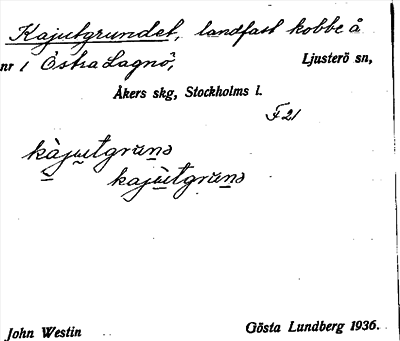 Kajutgrundet, landfast kobbe å
nr 1 Östra Lagnö, Ljusterö sn,
Åkers skg, Stockholms l.
F 21
kàjutgruns
kajùtgruns
John Westin Gösta Lundberg 1936.